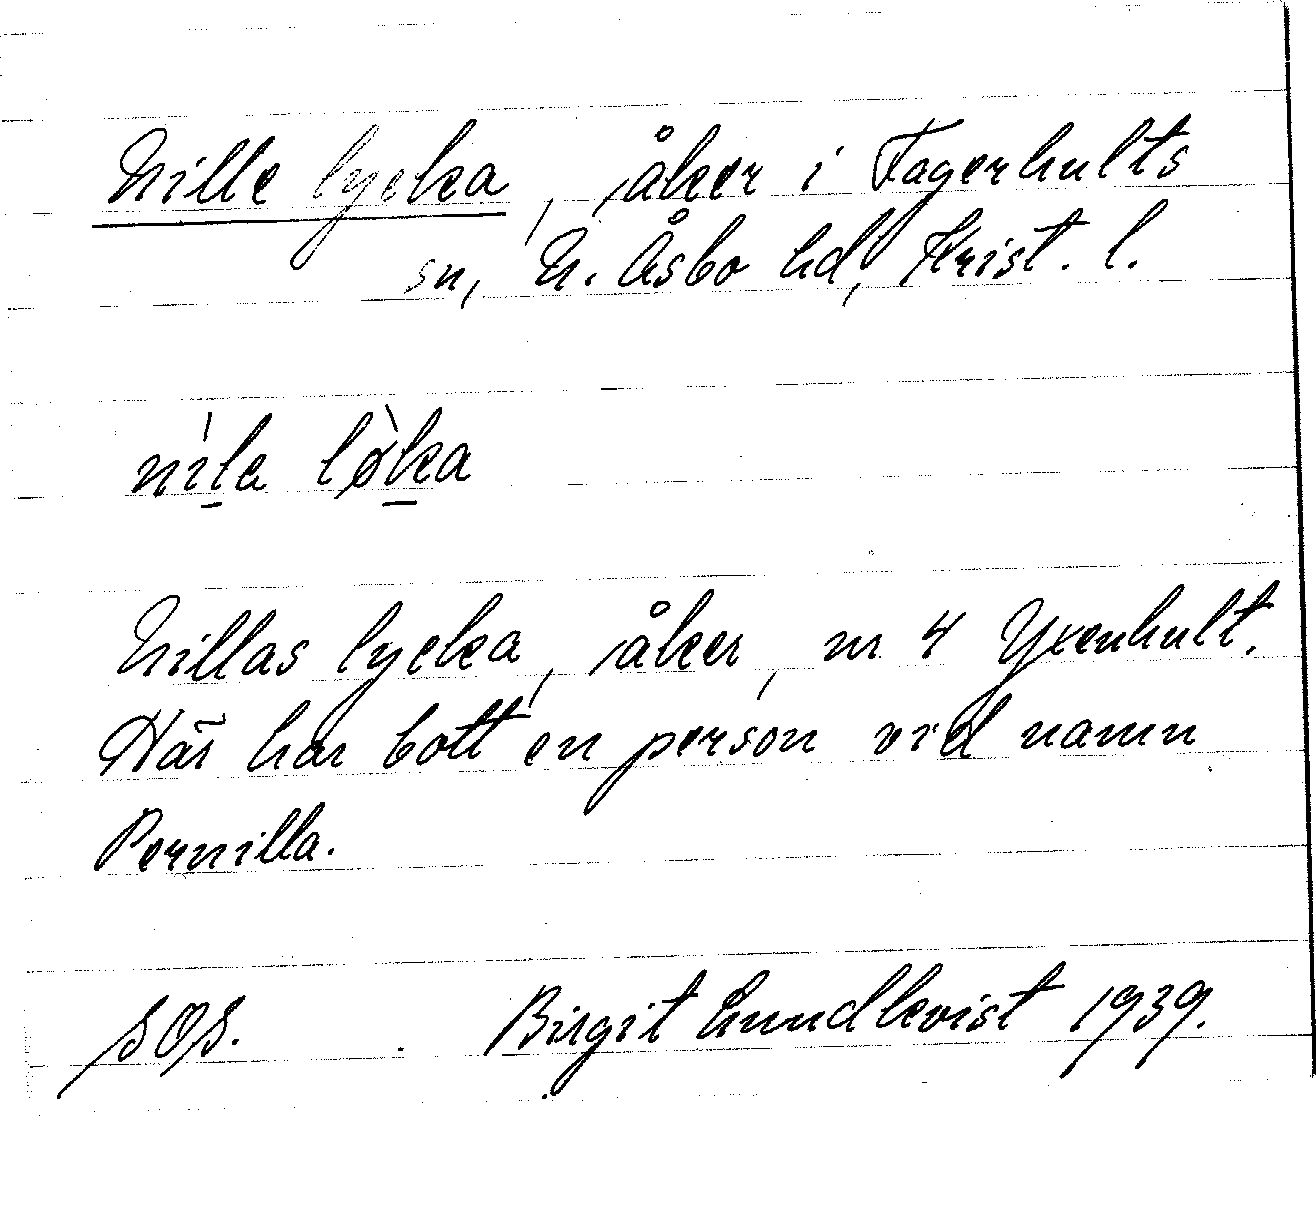 Nille lycka, åker i Fagerhults
sn, N. Åsbo hd, Krist. l.
nìla lø̀ka
Nillas lycka, åker, nr 4 Yxenhult.
Här har bott en person vid namn
Pernilla.
SOS. Birgit Lundkvist 1939.